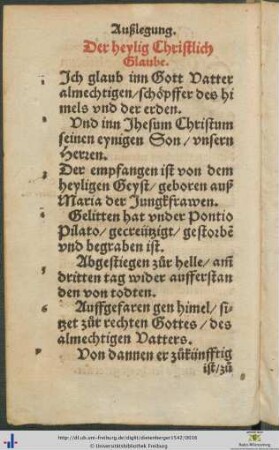 Außlegung.
Der heylig Christlich
Glaube.
1 Ich glaub inn Gott Vatter
almechtigen/schöpffer des hi
mels vnd der erden.
Vnd inn Jhesum Christum
seinen eynigen Son/vnsern
Herren.
3 Der empfangen ist von dem
heyligen Geyst/geboren auß
Maria der Jungkfrawen.
Gelitten hat vnder Pontio
Pilato/gecreützigt/gestorbē
vnd begraben ist.
5 Abgestiegen zůr helle/am
dritten tag wider aufferstan
den von todten.
6 Auffgefaren gen himel/si-
tzet zůr rechten Gottes/des
almechtigen Vatters.
Von dannen er zůkünfftig
ist/zů
http://dl.ub.uni-freiburg.de/diglit/dietenberger1542/0008
© Universitätsbibliothek Freiburg
Baden-Württemberg